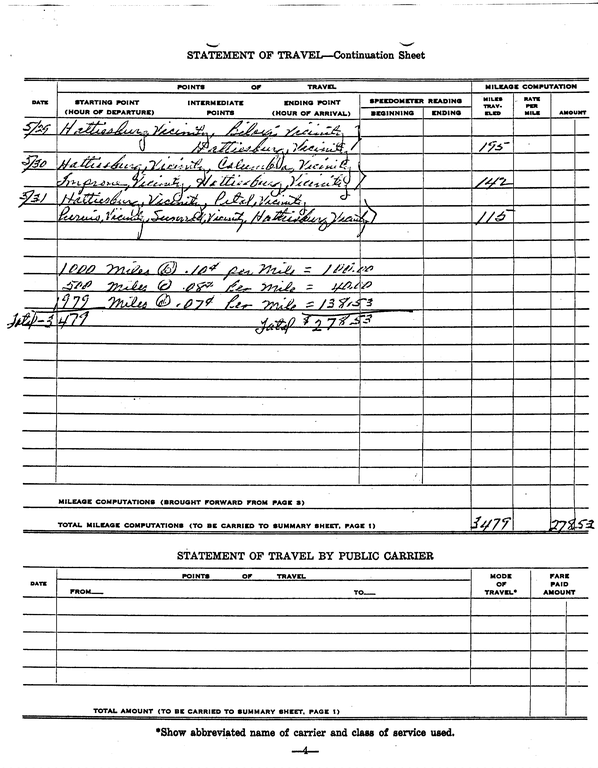 STATEMENT OF TRAVEL—Continuation Sheet
POINTS OF TRAVEL MILEAGE COMPUTATION
DATE STARTING POINT INTERMEDIATE ENDING POINT SPEEDOMETER READING MILES TRAV- ELED RATE PER MILE AMOUNT
(HOUR OF DEPARTURE) POINTS (HOUR OF ARRIVAL) BEGINNING ENDING
5/29 Hattiesburg Vicinity, Biloxi Vicinity
Hattiesburg, Vicinity 195
5/30 Hattiesburg, Vicinity, Columbia, Vicinity,
Improve, Vicinity, Hattiesburg, Vicinity 142
5/31 Hattiesburg, Vicinity, Petal, Vicinity,
Purvis, Vicinity, Sumrall, Vicinity, Hattiesburg Vicinity 115
1000 Miles @ .10¢ per Mile = 100.00
500 Miles @ .08¢ Per Mile = 40.00
1979 Miles @ .07¢ Per Mile = 138.53
Total-3479 Total $278.53
MILEAGE COMPUTATIONS (BROUGHT FORWARD FROM PAGE 3)
TOTAL MILEAGE COMPUTATIONS (TO BE CARRIED TO SUMMARY SHEET, PAGE 1) 3479 278.53
STATEMENT OF TRAVEL BY PUBLIC CARRIER
DATE POINTS OF TRAVEL MODE OF TRAVEL* FARE PAID AMOUNT
FROM— TO—
TOTAL AMOUNT (TO BE CARRIED TO SUMMARY SHEET, PAGE 1)
*Show abbreviated name of carrier and class of service used.
—4—